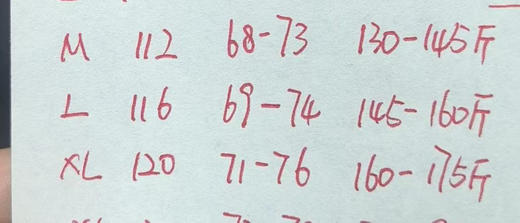 M 112 68-73 130-145斤
L 116 69-74 145-160斤
XL 120 71-76 160-175斤